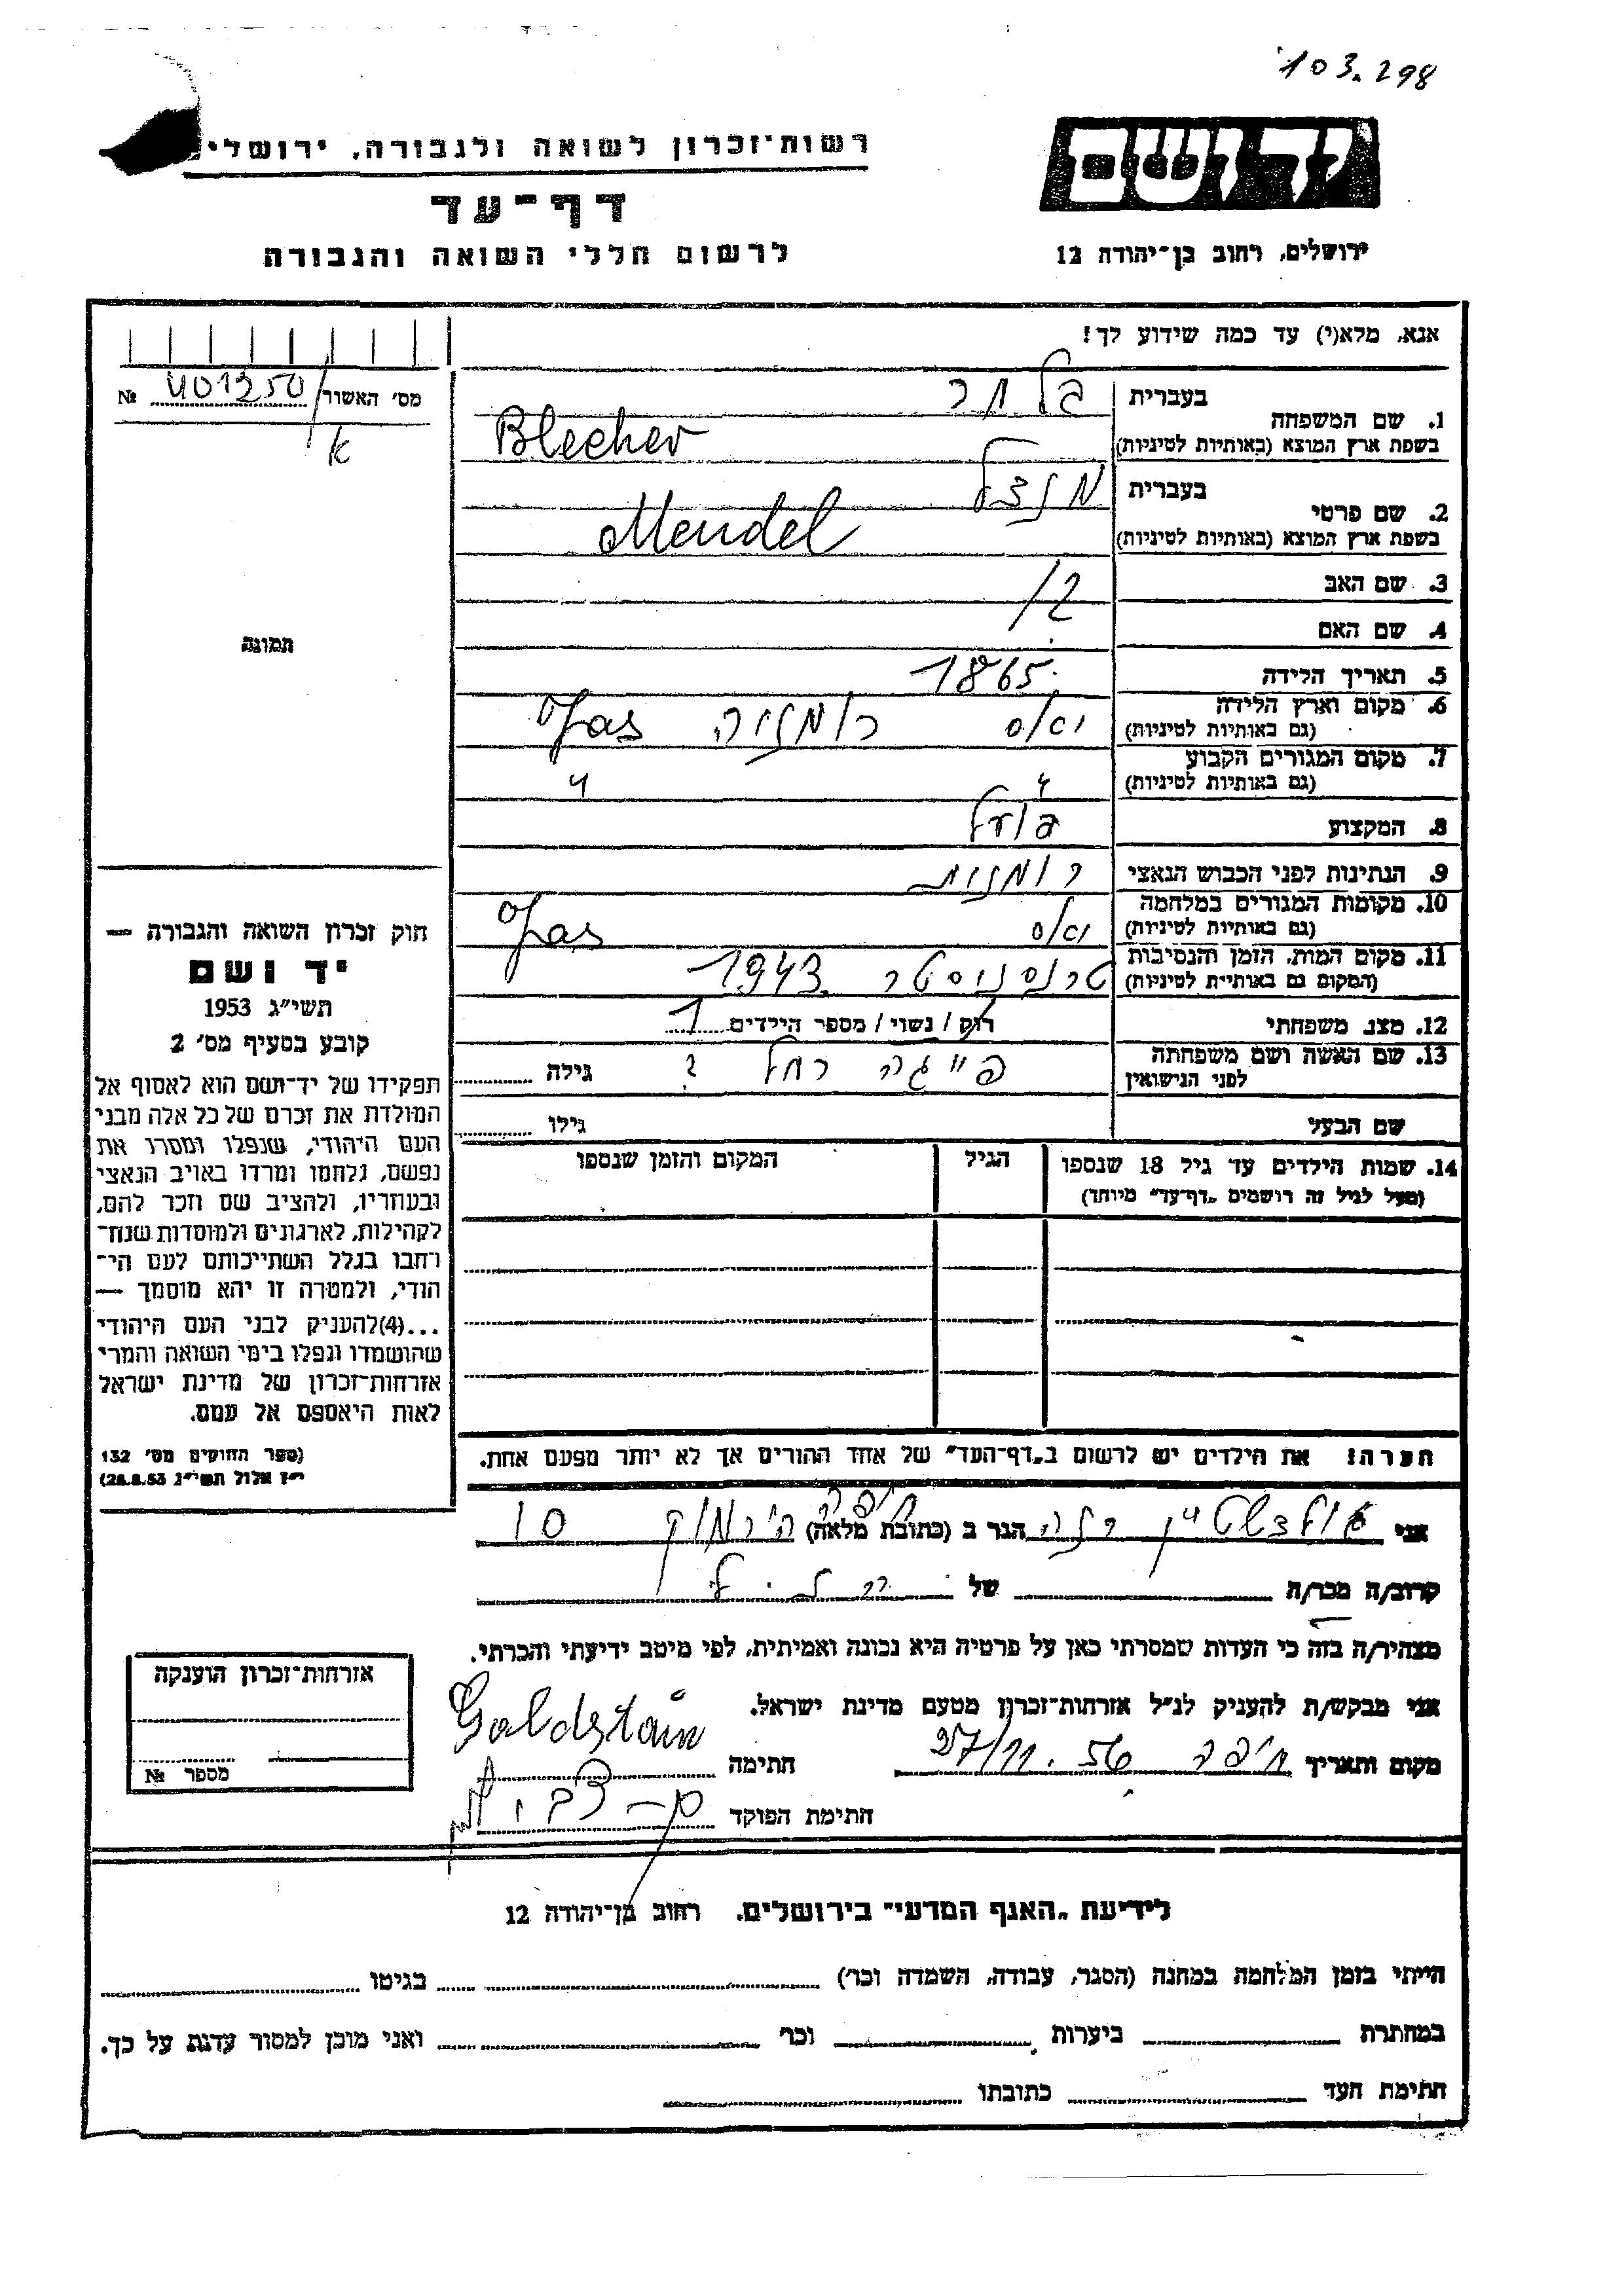 103.298
רשות־זכרון לשואה ולגבורה, ירושלי
יד ושם
דף־עד
לרשום חללי השואה והגבורה
ירושלים, רחוב בן־יהודה 12
אנא, מלא(י) עד כמה שידוע לך!
מס' האשור № 401250/
א
תמונה
1. שם המשפחה
בעברית בלחר
בשפת ארץ המוצא (באותיות לטיניות) Blecher
2. שם פרטי
בעברית מנדל
בשפת ארץ המוצא (באותיות לטיניות) Mendel
3. שם האב
4. שם האם
5. תאריך הלידה 1865
6. מקום וארץ הלידה
(גם באותיות לטיניות) יאס רומניה Jas
7. מקום המגורים הקבוע
(גם באותיות לטיניות) " "
8. המקצוע פועל
9. הנתינות לפני הכבוש הנאצי רומנית
10. מקומות המגורים במלחמה
(גם באותיות לטיניות) יאס Jas
11. מקום המות, הזמן והנסיבות
(המקום גם באותיות לטיניות) טרנסניסטר 1943
12. מצב משפחתי רוק / נשוי / מספר הילדים 1
13. שם האשה ושם משפחתה
לפני הנישואין פייגה רחל ? גילה
שם הבעל גילו
14. שמות הילדים עד גיל 18 שנספו הגיל המקום והזמן שנספו
(מעל לגיל זה רושמים „דף־עד" מיוחד)
חוק זכרון השואה והגבורה —
יד ושם
תשי"ג 1953
קובע בסעיף מס' 2
תפקידו של יד־ושם הוא לאסוף אל
המולדת את זכרם של כל אלה מבני
העם היהודי, שנפלו ומסרו את
נפשם, נלחמו ומרדו באויב הנאצי
ובעוזריו, ולהציב שם וזכר להם,
לקהילות, לארגונים ולמוסדות שנח־
רבו בגלל השתייכותם לעם הי־
הודי, ולמטרה זו יהא מוסמך —
...(4)להעניק לבני העם היהודי
שהושמדו ונפלו בימי השואה והמרי
אזרחות־זכרון של מדינת ישראל
לאות היאספם אל עמם.
(ספר החוקים מס' 132
י"ז אלול תשי"ג 28.8.53)
הערה! את הילדים יש לרשום ב„דף־העד" של אחד ההורים אך לא יותר מפעם אחת.
אני גולדשטיין רנה הגר ב (כתובת מלאה) חיפה הירמוק 10
קרוב/ה מכר/ה של
מצהיר/ה בזה כי העדות שמסרתי כאן על פרטיה היא נכונה ואמיתית, לפי מיטב ידיעתי והכרתי.
אני מבקש/ת להעניק לנ"ל אזרחות־זכרון מטעם מדינת ישראל.
מקום ותאריך חיפה 27/11.56 חתימה Goldstain
חתימת הפוקד
אזרחות־זכרון הוענקה
מספר №
לידיעת „האגף המדעי" בירושלים, רחוב בן־יהודה 12
הייתי בזמן המלחמה במחנה (הסגר, עבודה, השמדה וכו') בגיטו
במחתרת ביערות וכו' ואני מוכן למסור עדות על כך.
חתימת העד כתובתו